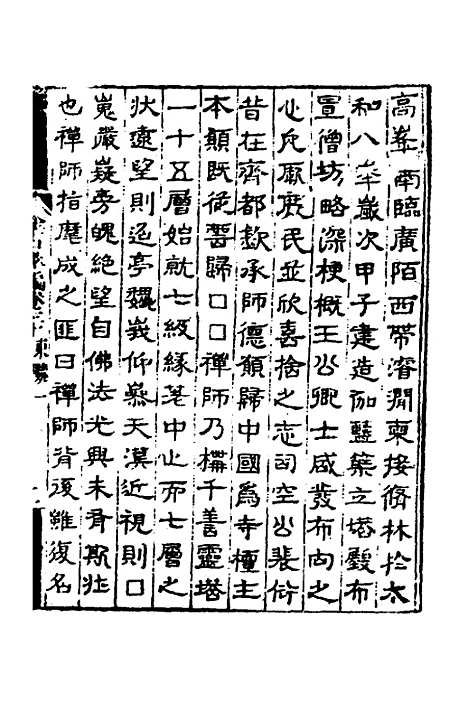 高峯南臨廣陌西帶濬澗東接脩林於太
和八年歲次甲子建造伽藍築立塔殿布
置僧坊略深梗概王公卿士咸發布向之
心凡厥庶民並欣喜捨之志司空公裴衍
昔在齊都欽承師德願歸中國為寺檀主
本願既從誓歸口口禪師乃構千善靈塔
一十五層始就七級緣差中止而七層之
狀遠望則迢亭巍峩仰參天漢近視則口
嵬嚴嶷旁魄絕望自佛法光興未有斯壯
也禪師指麾成之匪日禪師背後雖復名